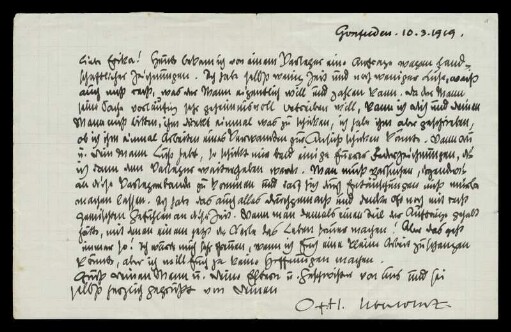 Goßfelden. 10.3.1919.
Liebe Erika! Heute bekam ich von einem Verleger eine Anfrage wegen land-
schaftlicher Zeichnungen. Ich habe selbst wenig Zeit und noch weniger Lust, weiß
auch nicht recht, was der Mann eigentlich will und zahlen kann. Da der Mann
seine Sache vorläufig sehr geheimnisvoll betreiben will, kann ich dich und deinen
Mann nicht bitten, ihm direkt einmal was zu schicken, ich habe ihm aber geschrieben,
ob ich ihm einmal Arbeiten eines Verwandten zur Ansicht schicken könnte. Wenn du
u. Dein Mann Lust habt, so schickt mir bald einige Eurer Federzeichnungen, die
ich dann dem Verleger weitergeben werde. Man muß versuchen, irgendwie
an diese Verlegerbande zu kommen und darf sich durch Enttäuschungen nicht mürbe
machen lassen. Ich habe das auch alles durchgemacht und denke oft noch mit recht
gemischten Gefühlen an diese Zeit. Wenn man damals einen Teil der Aufträge gehabt
hätte, mit denen einem jetzt die Leute das Leben sauer machen! Aber das geht
immer so! Ich würde mich sehr freuen, wenn ich Euch eine kleine Arbeit zuschanzen
könnte, aber ich will Euch ja keine Hoffnungen machen.
Grüß deinen Mann u. deine Eltern u. Geschwister von uns und sei
selbst herzlich gegrüßt von deinem
Otto Ubbelohde